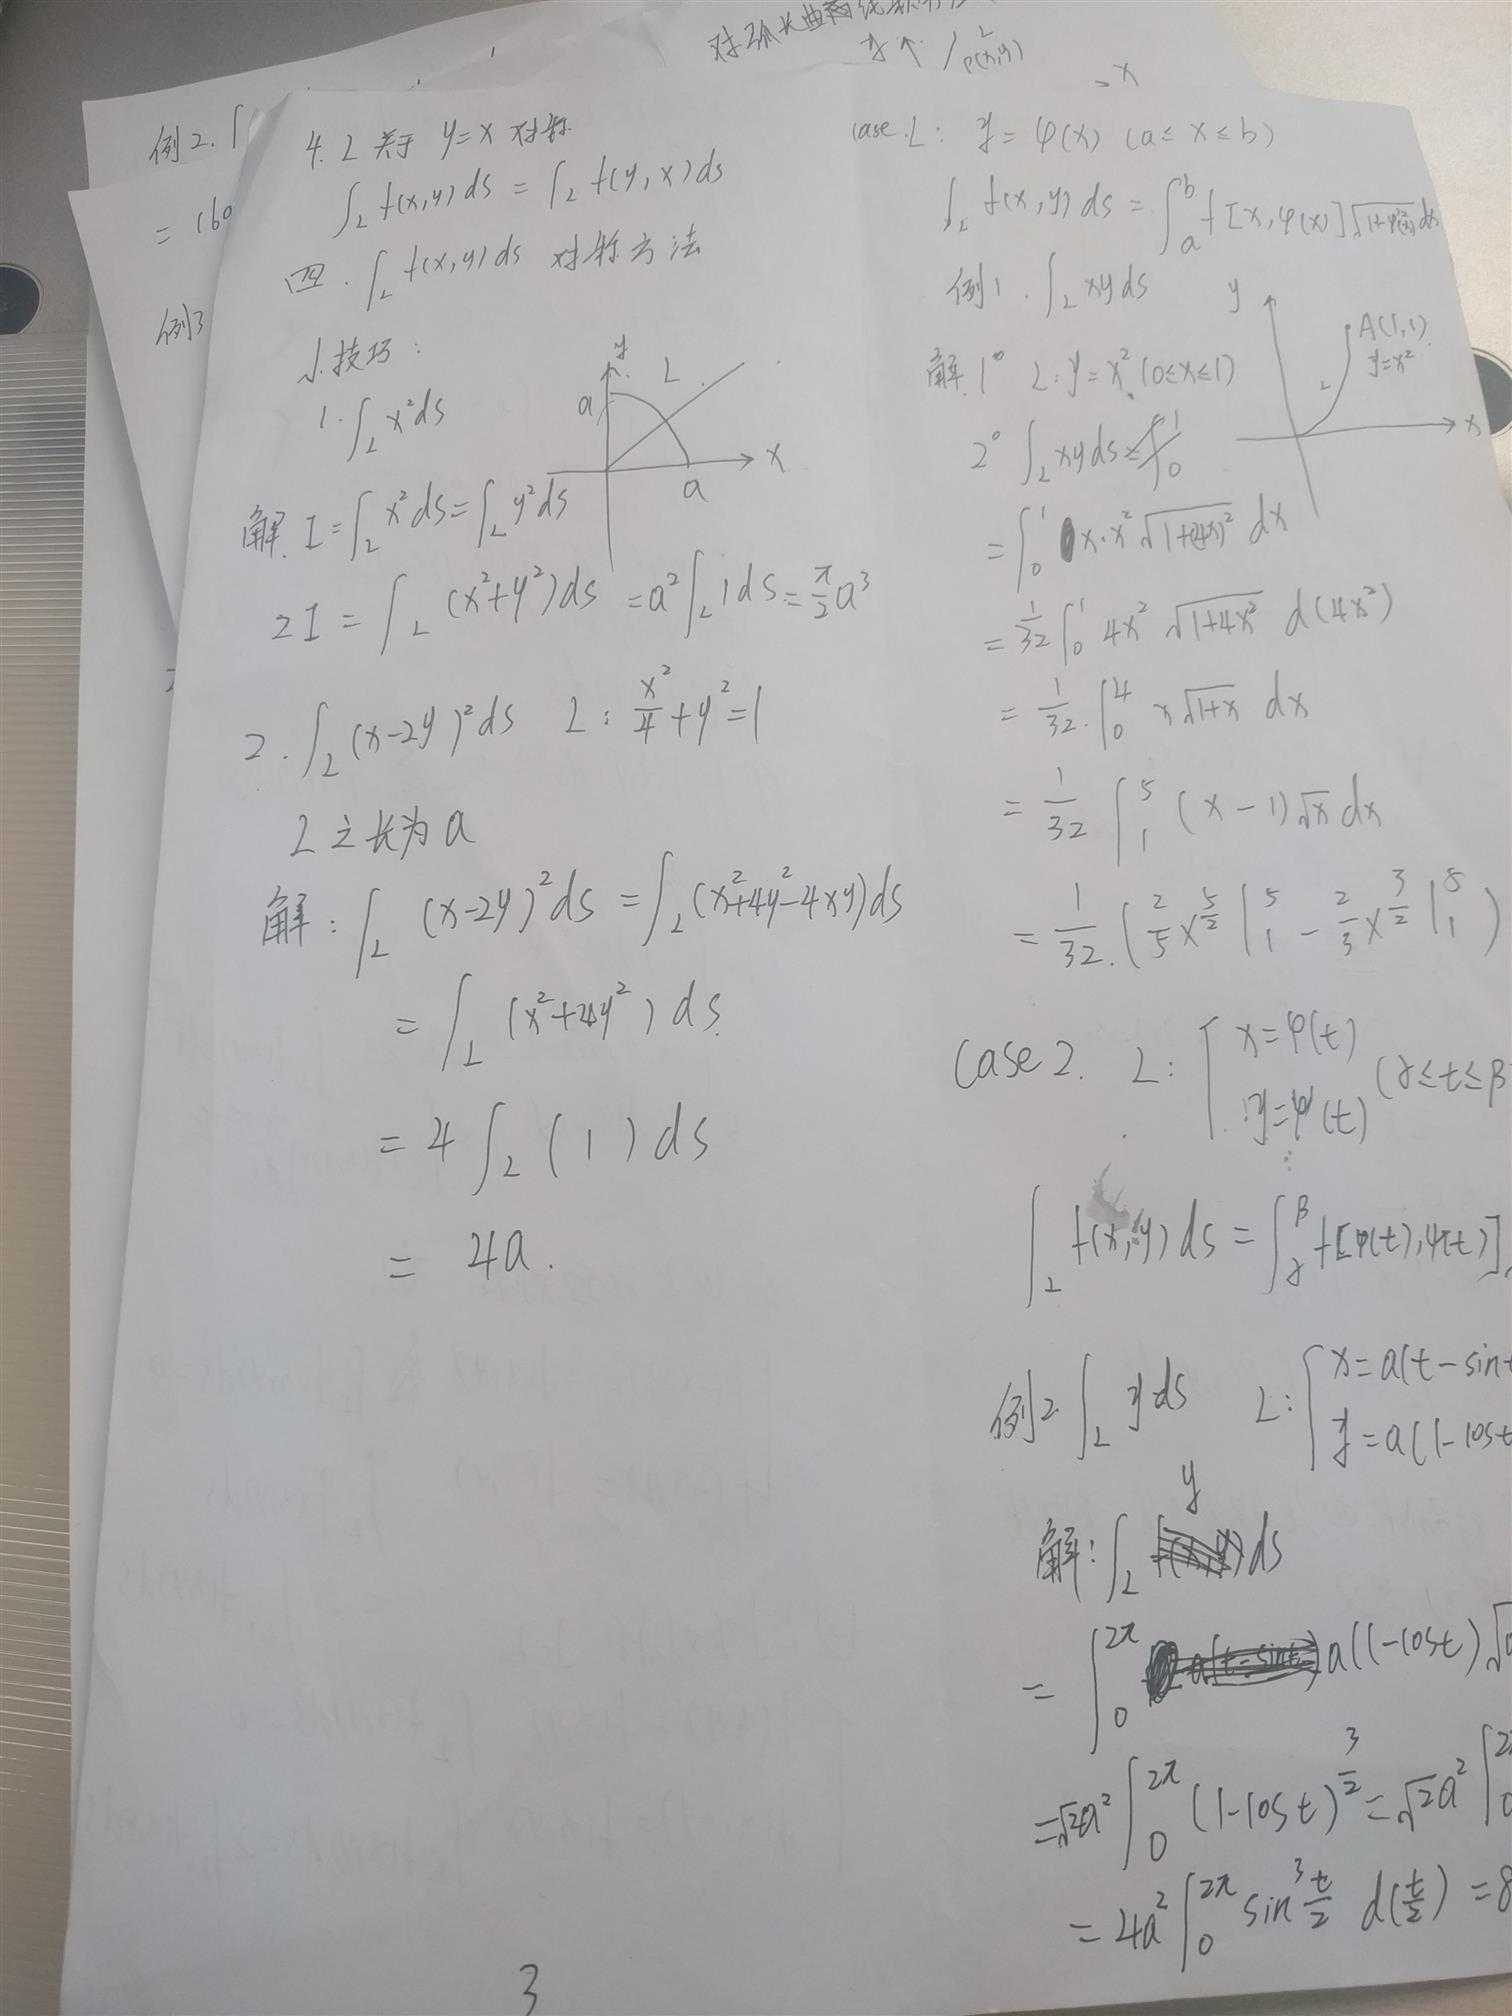 对弧长曲
y
(x,y)
x
例2. ∫
= (60
例3
4. L 关于 y=x 对称
∫_L f(x,y)ds = ∫_L f(y,x)ds
四. ∫_L f(x,y)ds 对称方法
小技巧:
1. ∫_L x²ds
y
L
a
x
a
解. I=∫_L x²ds=∫_L y²ds
2I = ∫_L (x²+y²)ds =a²∫_L 1ds=π/2 a³
2. ∫_L (x-2y)²ds L: x²/4+y²=1
L之长为a
解: ∫_L (x-2y)²ds =∫_L(x²+4y²-4xy)ds
= ∫_L (x²+4y²) ds
= 4∫_L (1) ds
= 4a.
3
case. L: y=φ(x) (a≤x≤b)
∫_L f(x,y)ds = ∫_a^b f[x,φ(x)]
例1. ∫_L xyds
y
A(1,1)
y=x²
L
x
解. 1° L:y=x² (0≤x≤1)
2° ∫_L xyds
=∫_0^1 x·x² dx
=1/32∫_0^1 4x²√(1+4x²) d(4x²)
= 1/32·∫_0^4 x√(1+x) dx
= 1/32 ∫_1^5 (x-1)√x dx
= 1/32.(2/5 x^(5/2) |_1^5 - 2/3 x^(3/2) |_1^5)
Case 2. L: { x=φ(t)
y=ψ(t) (α≤t≤β
∫_L f(x,y)ds = ∫_α^β f[φ(t),ψ(t)]
例2. ∫_L yds L: { x=a(t-sint
y=a(1-cost
解: ∫_L y ds
= ∫_0^2π a(1-cost)√
=√2a² ∫_0^2π (1-cost)^(3/2) = √2a² ∫
= 4a² ∫_0^2π sin³ t/2 d(t/2) =8